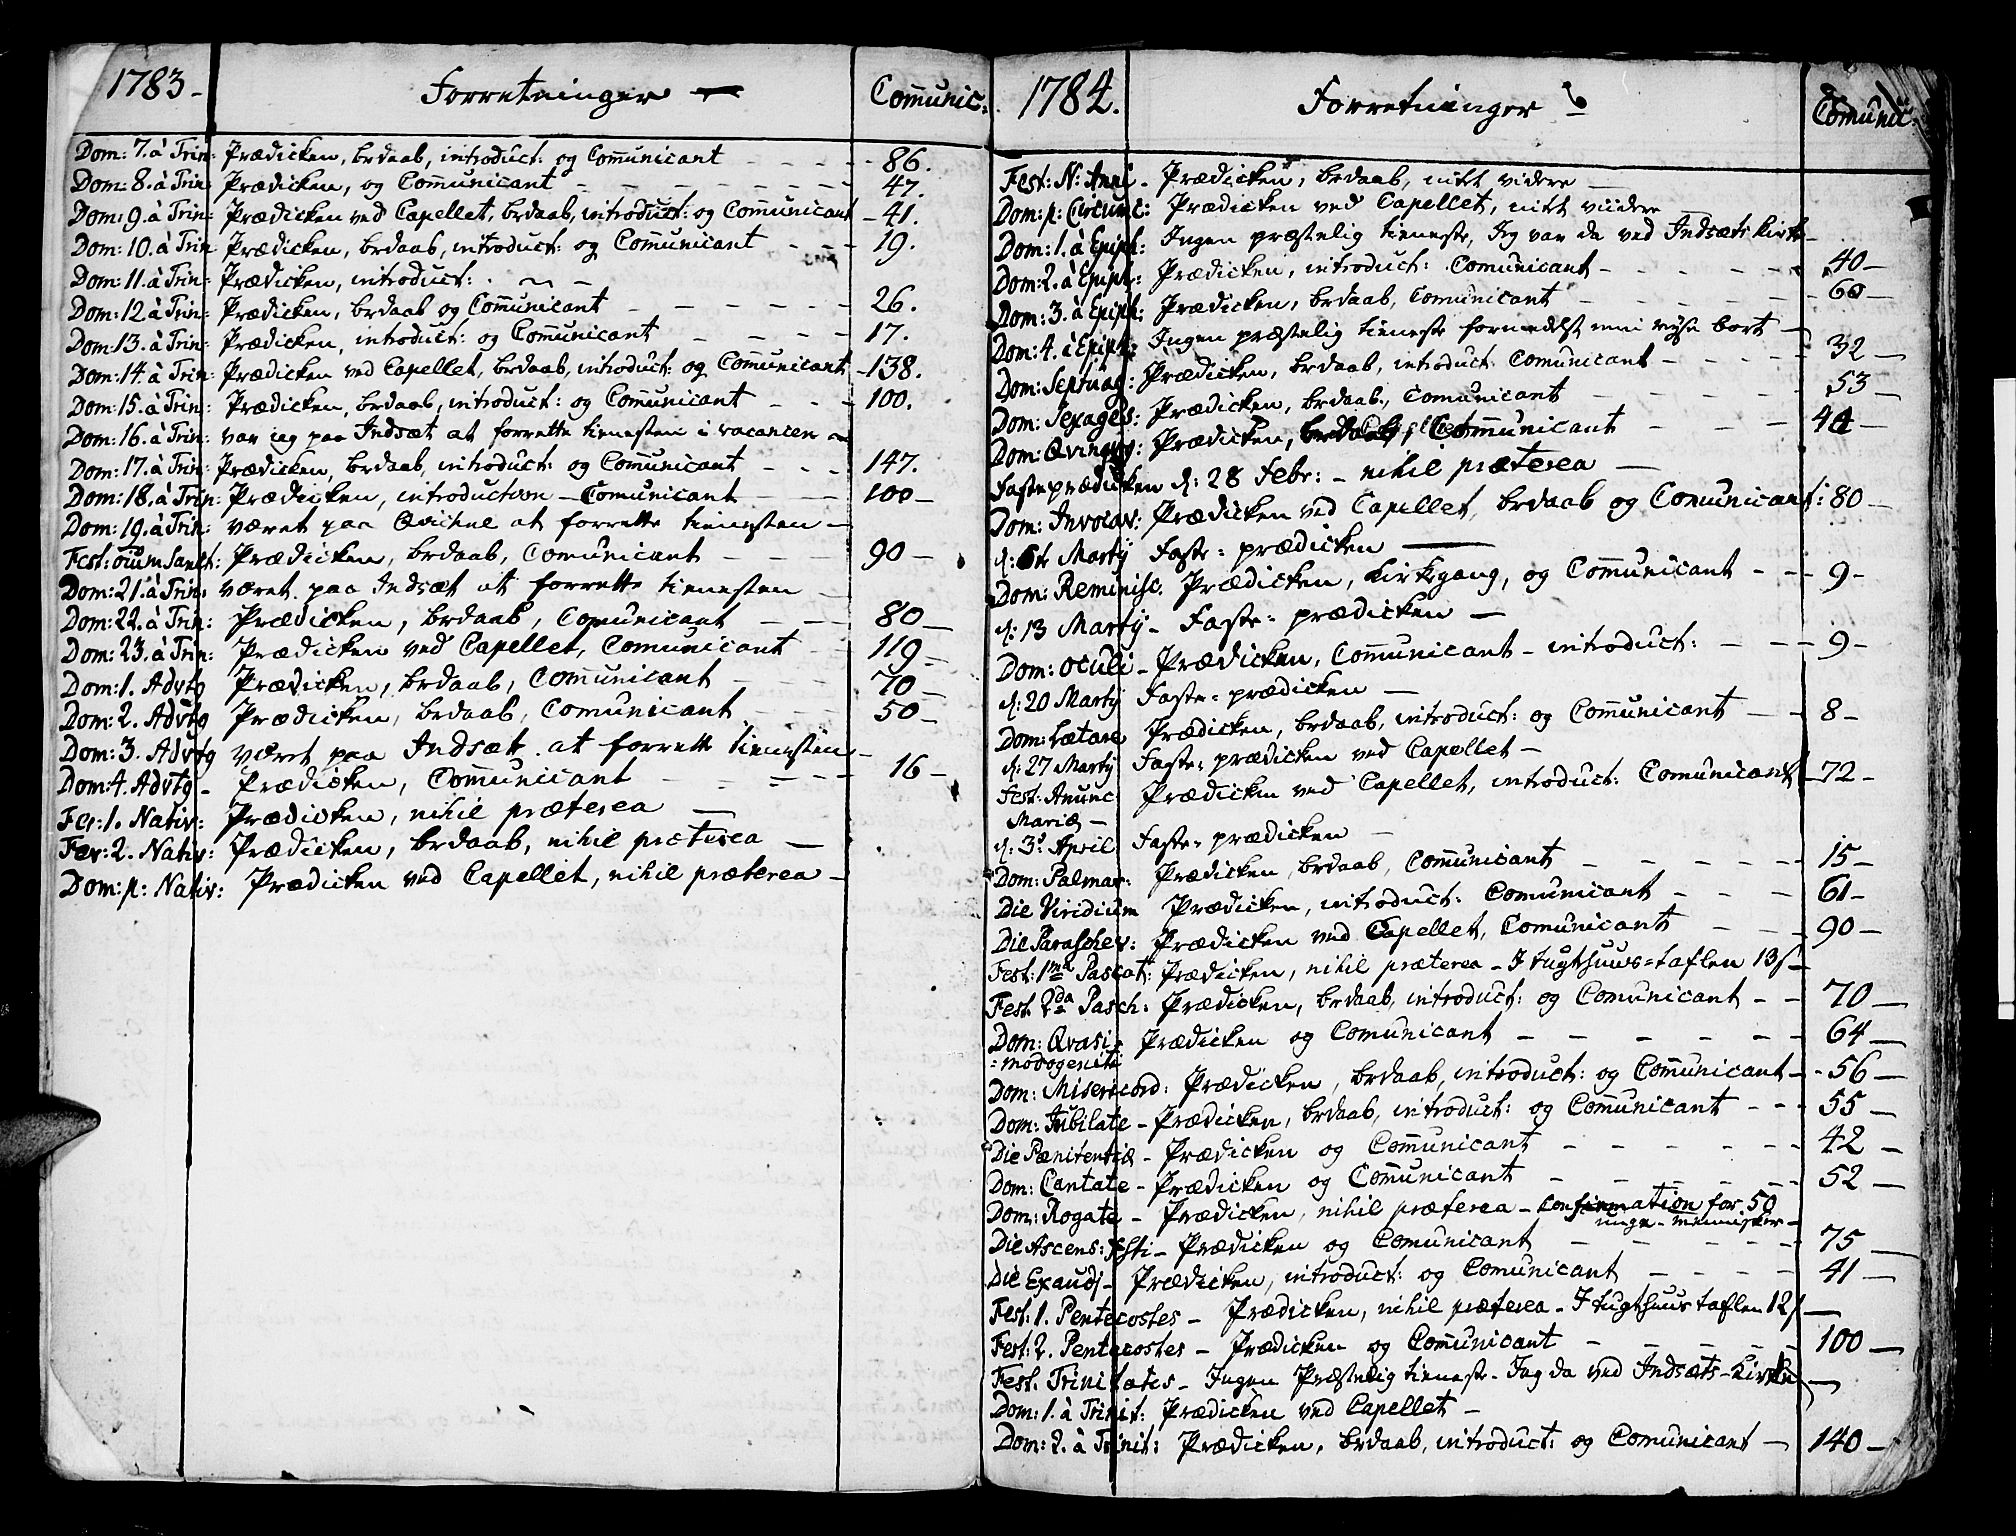 1783 - Forretninger — Comunic:
Dom: 7. à Trin: Prædicken, brdaab, introduct: og Communicant - - - - 86.
Dom: 8. à Trin: Prædicken, og Communicant - - - - - - - 47.
Dom: 9. à Trin: Prædicken ved Capellet, brdaab, introduct: og Communicant - 41.
Dom: 10. à Trin Prædicken, brdaab, introduct: og Communicant - - - 19.
Dom: 11. à Trin: Prædicken, introduct:
Dom: 12 à Trin: Prædicken, brdaab og Communicant - - - - - 26.
Dom: 13. à Trin: Prædicken, introduct: og Communicant - - - - 17.
Dom: 14. à Trin: Prædicken ved Capellet, brdaab, introduct: og Communicant - 138.
Dom: 15. à Trin: Prædicken, brdaab, introduct: og Communicant - - - 100.
Dom: 16. à Trin: var jeg paa Indsæt at forrette tienesten i vacancen -
Dom: 17. à Trin: Prædicken, brdaab, introduct: og Communicant - - - 147.
Dom: 18. à Trin: Prædicken, introduction - Comunicant - - 100 -
Dom: 19. à Trin: været paa Qvichne at forrette tienesten -
Fest: oium Sanct: Prædicken, brdaab, Comunicant - - - 90 -
Dom: 21. à Trin: været paa Indsæt at forrette tienesten -
Dom: 22. à Trin: Prædicken, brdaab, Comunicant - - - 80 -
Dom: 23. à Trin: Prædicken ved Capellet, Comunicant - - 119 -
Dom: 1. Advtg Prædicken, brdaab, Communicant - - - 70 -
Dom: 2. Advtg Prædicken, brdaab, Comunicant - - - 50 -
Dom: 3. Advtg været paa Indsæt at forrette tienesten -
Dom: 4. Advtg - Prædicken, Communicant - - - - 16 -
Fer: 1. Nativ: Prædicken, nihil præterea —
Fer: 2. Nativ: Prædicken, brdaab, nihil præterea —
Dom: p: Nativ: Prædicken ved Capellet, nihil præterea -
1784. Forretninger Comunic:
Fest: N: Anni - Prædicken, brdaab, intet videre —
Dom: p: Circumc: Prædicken ved Capellet, intet viidere —
Dom: 1. à Epiph: Ingen præstelig tieneste, Jeg var da ved Indsæts kirke -
Dom: 2. à Epiph: Prædicken, introduct: Comunicant - - - - - 40 -
Dom: 3. à Epiph: Prædicken, brdaab, Comunicant - - - - - - 60 -
Dom: 4. à Epiph: Ingen præstelig tieneste formedelst min reyse bort -
Dom: Septuag: Prædicken, brdaab, introduct: Comunicant - - - - - 32 -
Dom: Sexages: Prædicken, brdaab, Comunicant - - - - - 53 -
Dom: Qvingvg: Prædicken, Communicant - - - - 44 -
Fasteprædicken d: 28 Febr: - nihil præterea —
Dom: Invocav: Prædicken ved Capellet, brdaab og Comunicant: 80 -
d: 6te Martÿ Faste = prædicken —
Dom: Reminisc. Prædicken, kirkgang, og Communicant - - - 9 -
d: 13 Martÿ - Faste = prædicken —
Dom: Oculi - Prædicken, Communicant - introduct: - - - 9 -
d: 20 Martÿ Faste = prædicken —
Dom: Lætare Prædicken, brdaab, introduct: og Communicant - - 8 -
d: 27 Martÿ Faste = prædicken ved Capellet -
Fest: Anunc: Prædicken ved Capellet, introduct: Comunicant - 72 -
Mariæ -
d: 3: April Faste = prædicken -
Dom: Palmar: Prædicken, brdaab, Communicant - - - - - 15 -
Die Viridium Prædicken, introduct: Comunicant - - - 61 -
Die Paraschev: Prædicken ved Capellet, Comunicant - - - 90 -
Fest: 1ma Pascat: Prædicken, nihil præterea - I tugthuus = taflen 13 ſ -
Fest: 2da Pasch: Prædicken, brdaab, introduct: og Comunicant - - 70 -
Dom: Qvasi Prædicken og Comunicant - - - - - - 64 -
= modogeniti
Dom: Misericord: Prædicken, brdaab, introduct: og Communicant - - 56 -
Dom: Jubilate - Prædicken, brdaab, introduct: og Communicant - - - 55 -
Die Pænitentiæ - Prædicken og Communicant - - - - - 42 -
Dom: Cantate - Prædicken og Communicant - - - - - 52 -
Dom: Rogate - Prædicken, nihil præterea - Confirmation for 50
unge - mennisker -
Die Ascens: Xsti - Prædicken og Comunicant - - - - - 75 -
Die Exaudi - Prædicken, introduct: og Comunicant - - - - 41 -
Fest: 1. Pentecostes - Prædicken, nihil præterea - I tugthuus taflen 12 ſ -
Fest: 2. Pentecostes - Prædicken og Comunicant - - - - - 100 -
Fest. Trinitatis - Ingen Præstelig tieneste - Jeg da ved Indsæts - Kirke -
Dom: 1. à Trinit: Prædicken ved Capellet -
Dom: 2. à Trinit: Prædicken, brdaab, introduct: og Comunicant - 140 -